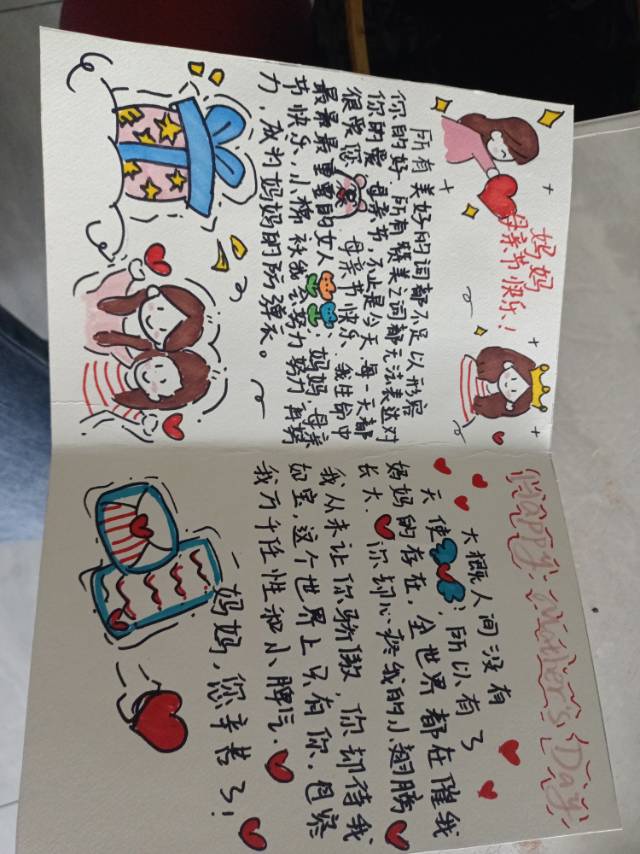 妈妈
母亲节快乐!
所有美好的词都不足以形容
你的好,所有赞美之词都无法表达对
你的爱,母亲节,不止是今天,每一天都
很爱您 母亲节快乐,我生命中
最最最重要的女人;妈妈,母亲
节快乐,小棉袄我会努力努力再努
力,成为妈妈的防弹衣。
Happy Mother's Day
大概人间没有
天使;所以有了
妈妈的存在,全世界都在催我
长大.你却心疼我的小翅膀
我从未让你骄傲,你却待我
如宝,这个世界上只有你,包容
我万千任性和小脾气.
—妈妈,您辛苦了!